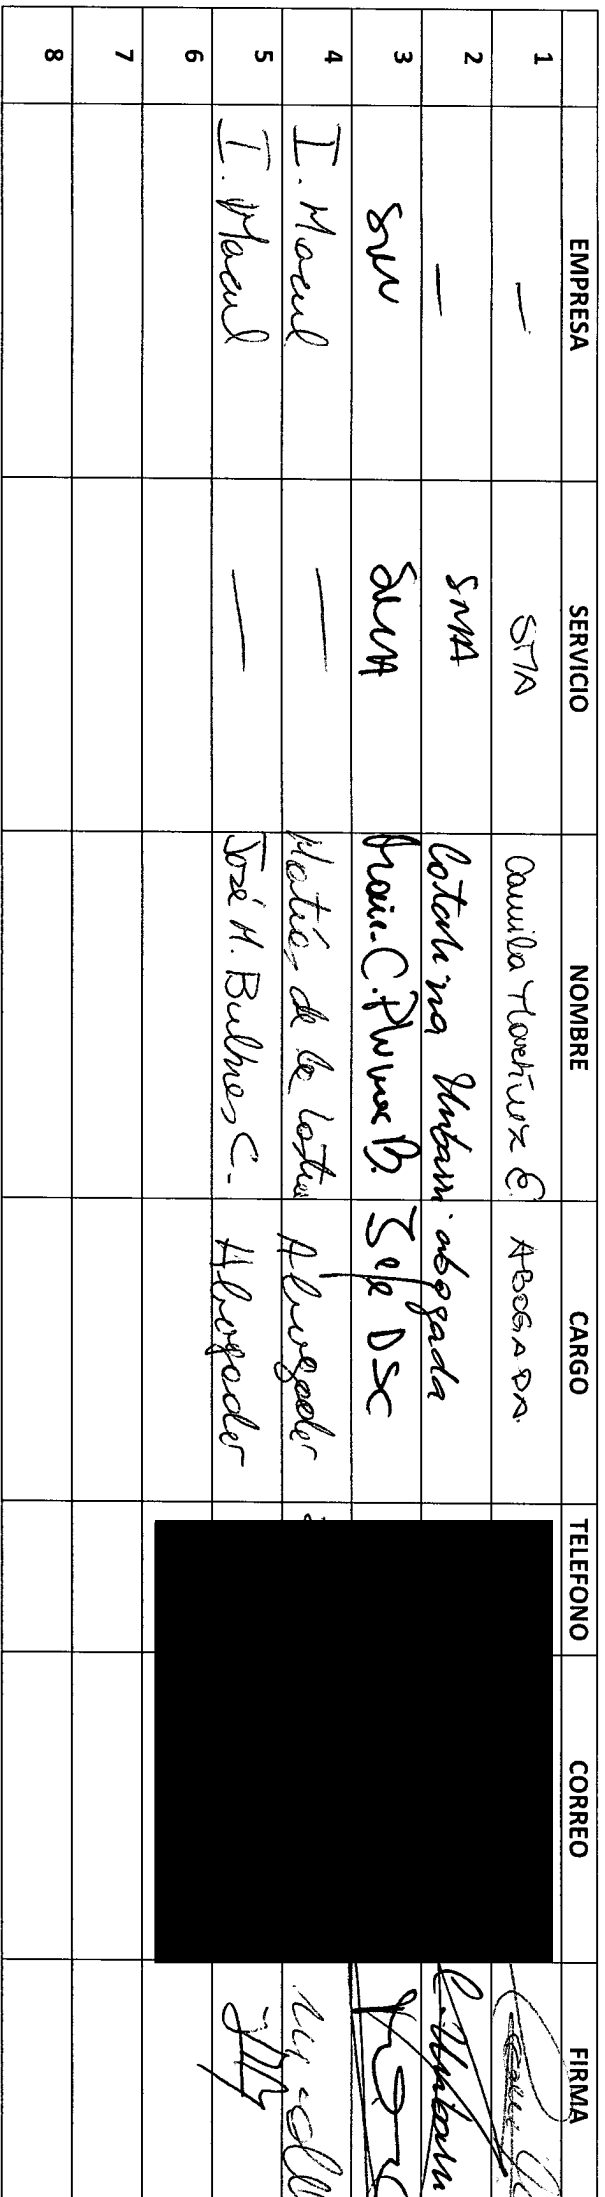 EMPRESA SERVICIO NOMBRE CARGO TELEFONO CORREO FIRMA
1 — SMA Camila Martínez E. ABOGADA.
2 — SMA Catalina Uribarri abogada
3 SMA Marie C. Plumer B. Jefe DSC
4 I. Macul — Matías de la Abogado
5 I. Macul — José M. Bulnes C. Abogado
6
7
8